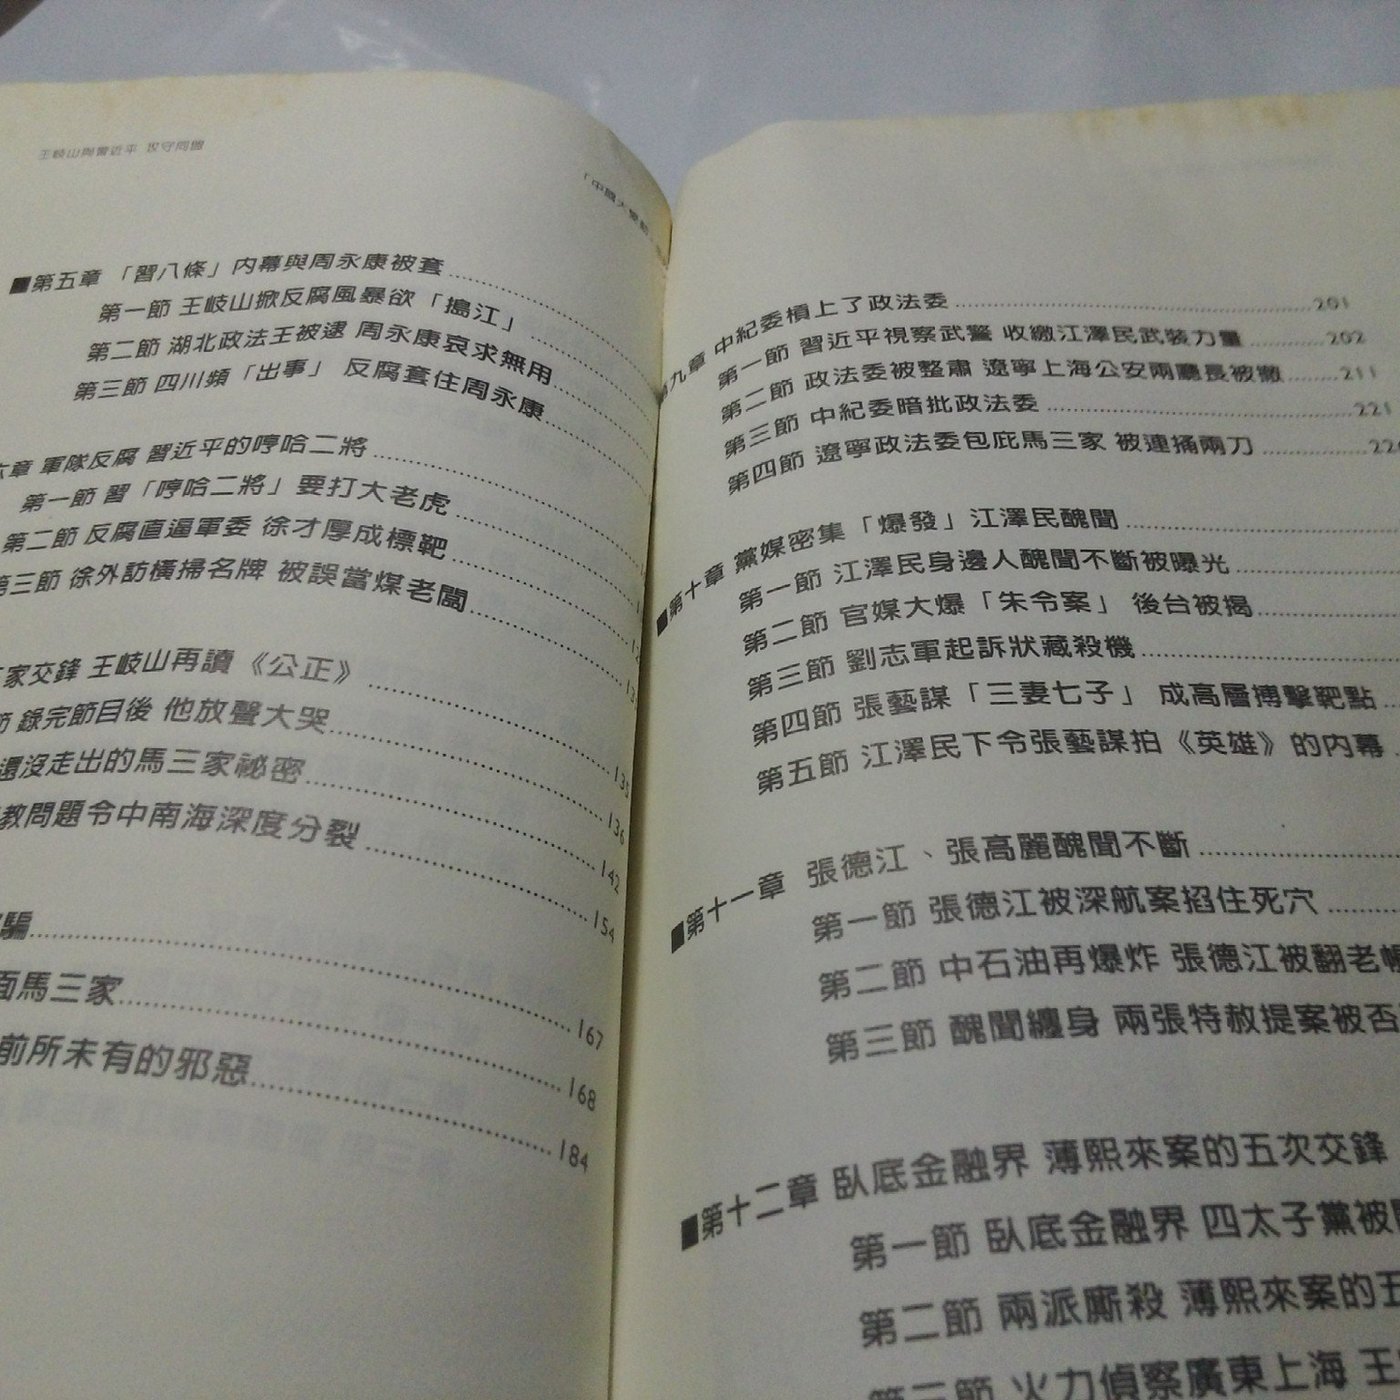 王岐山與習近平 攻守同盟
■第五章 「習八條」內幕與周永康被套
第一節 王岐山掀反腐風暴欲「搗江」
第二節 湖北政法王被逮 周永康哀求無用
第三節 四川頻「出事」 反腐套住周永康
六章 軍隊反腐 習近平的哼哈二將
第一節 習「哼哈二將」要打大老虎
第二節 反腐直逼軍委 徐才厚成標靶
第三節 徐外訪橫掃名牌 被誤當煤老闆
家交鋒 王岐山再讀《公正》
節 錄完節目後 他放聲大哭 136
還沒走出的馬三家祕密 142
教問題令中南海深度分裂 154
騙 167
面馬三家 168
前所未有的邪惡 184
「中國大變動」
九章 中紀委槓上了政法委 201
第一節 習近平視察武警 收繳江澤民武裝力量 202
第二節 政法委被整肅 遼寧上海公安兩廳長被撤 211
第三節 中紀委暗批政法委 221
第四節 遼寧政法委包庇馬三家 被連捅兩刀
■第十章 黨媒密集「爆發」江澤民醜聞
第一節 江澤民身邊人醜聞不斷被曝光
第二節 官媒大爆「朱令案」 後台被揭
第三節 劉志軍起訴狀藏殺機
第四節 張藝謀「三妻七子」 成高層搏擊靶點
第五節 江澤民下令張藝謀拍《英雄》的內幕
■第十一章 張德江、張高麗醜聞不斷
第一節 張德江被深航案掐住死穴
第二節 中石油再爆炸 張德江被翻老帳
第三節 醜聞纏身 兩張特赦提案被否
■第十二章 臥底金融界 薄熙來案的五次交鋒
第一節 臥底金融界 四太子黨被
第二節 兩派廝殺 薄熙來案的五
第三節 火力偵察廣東上海 王